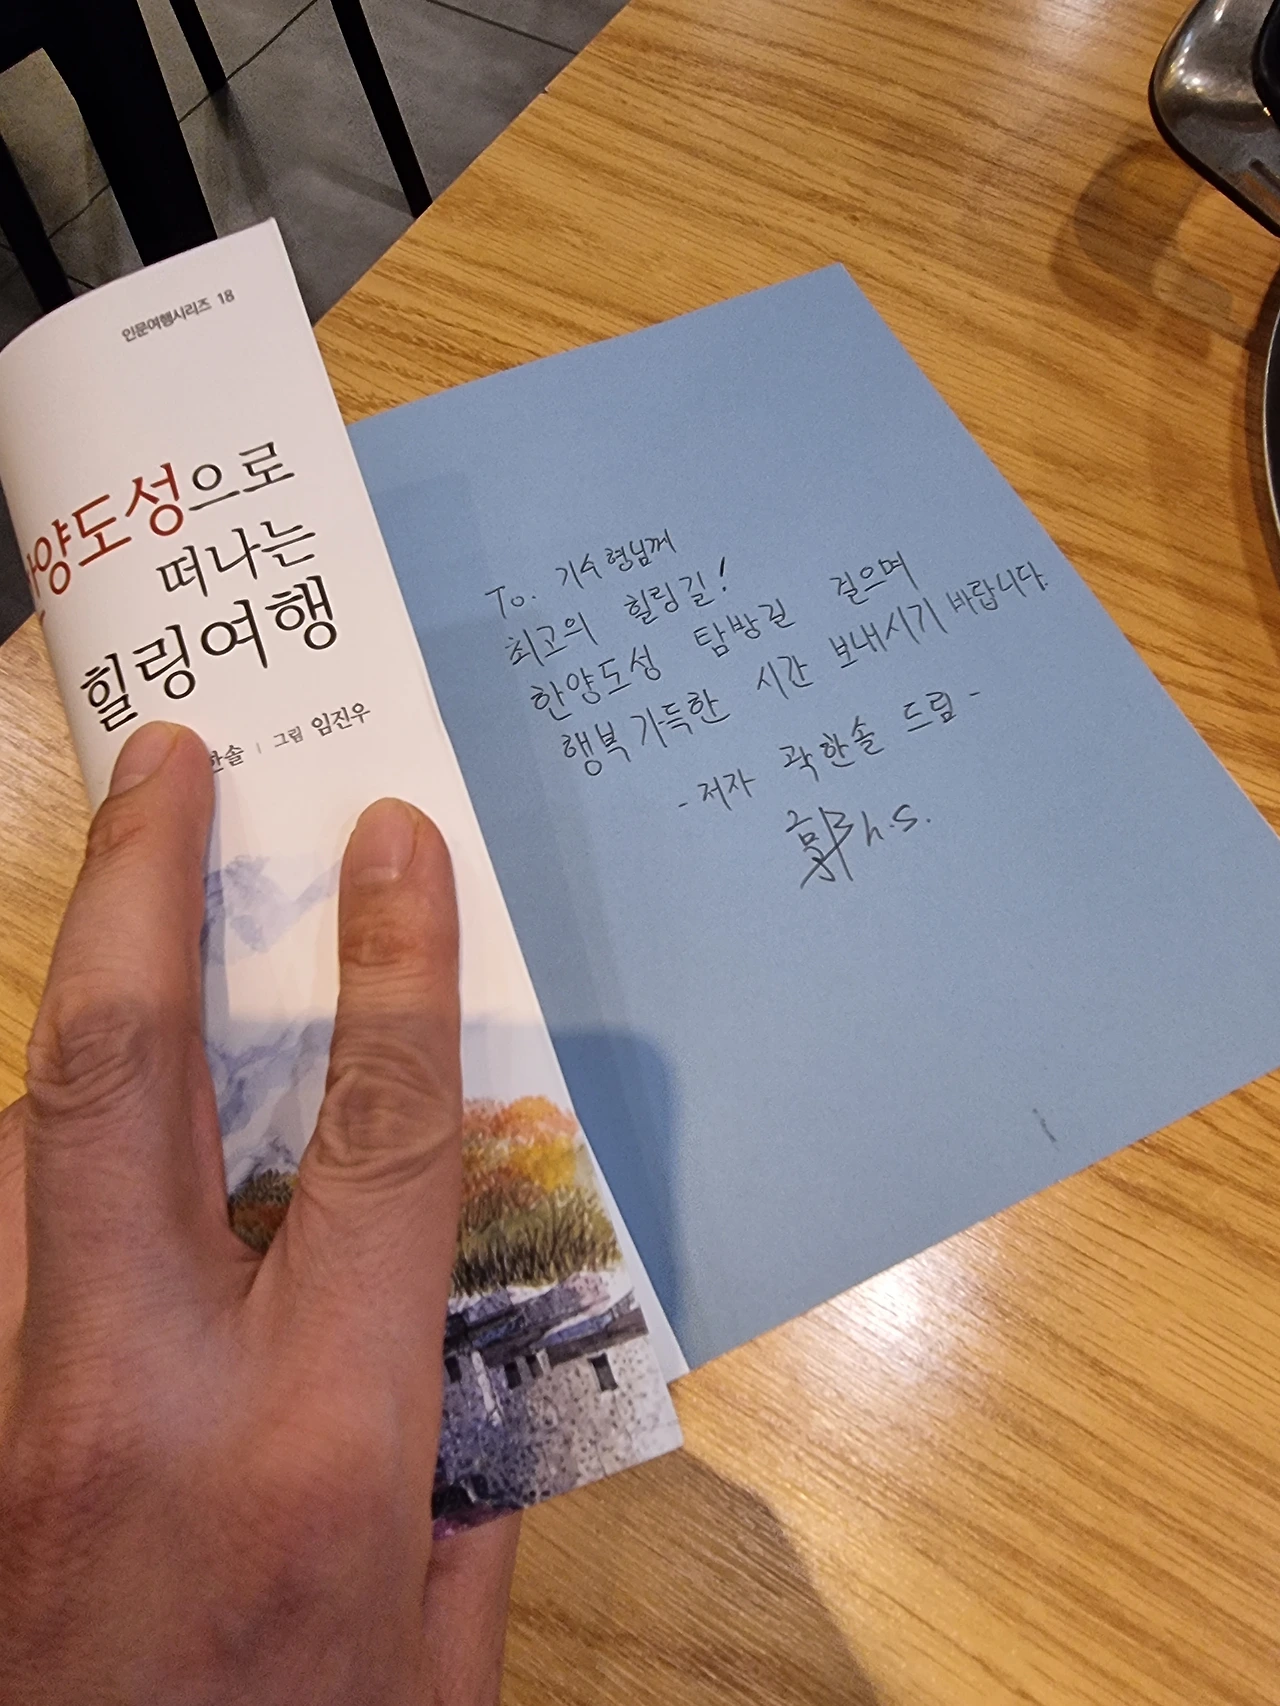 인문여행시리즈 18
양도성으로
떠나는
힐링여행
한솔 | 그림 임진우
To. 기수형님께
최고의 힐링길!
한양도성 탐방길 걸으며
행복 가득한 시간 보내시기 바랍니다.
- 저자 곽한솔 드림 -
郭 h.s.